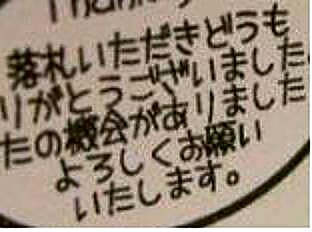 Thank
落札いただきどうも
りがとうございました。
たの機会がありました
よろしくお願い
いたします。